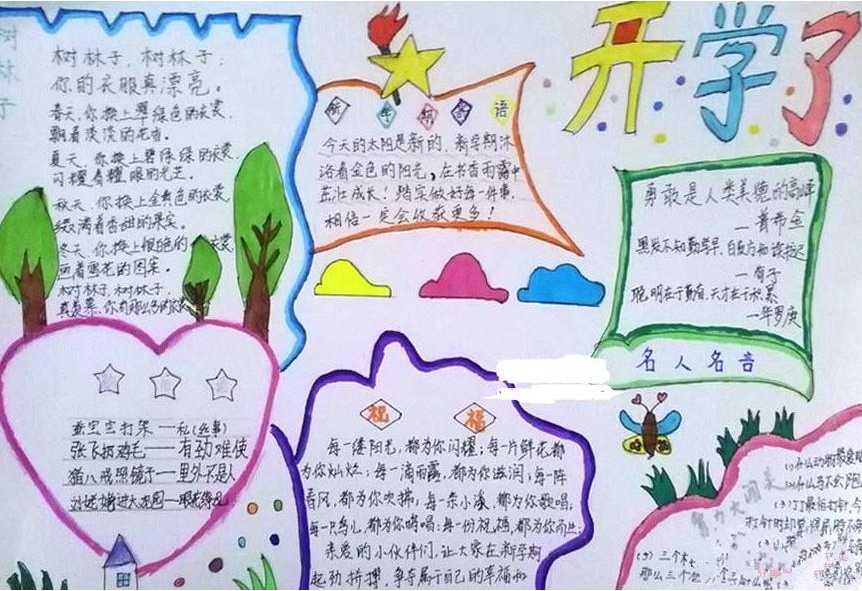 树林子
树林子，树林子：
你的衣服真漂亮。
春天，你换上翠绿色的衣裳，
飘着淡淡的花香。
夏天，你换上碧绿绿的衣裳，
闪耀着耀眼的光芒。
秋天，你换上金黄色的衣裳，
缀满着香甜的果实。
冬天，你换上银色的衣裳
画着雪花的图案。
树林子，树林子，
新学期寄语
今天的太阳是新的，新学期沐
浴着金色的阳光，在书香雨露中
茁壮成长！踏实做好每一件事，
相信一定会收获更多！
开学了
勇敢是人类美德的高峰
—普希金
黑发不知勤学早，白首方知读书迟
聪明在于勤奋，天才在于积累
名人名言
蚕宝宝打架——私(丝事)
张飞扔鸡毛——有劲难使
猪八戒照镜子——里外不是人
祝福
每一缕阳光，都为你闪耀；每一片鲜花都
为你灿烂；每一滴雨露，都为你滋润；每一阵
春风，都为你吹拂；每一条小溪，都为你歌唱，
每一只鸟儿，都为你鸣唱；每一份祝福，都为你
亲爱的小伙伴们，让大家在新学期
起劲拼搏，争夺属于自己的幸福和
智力大闯关